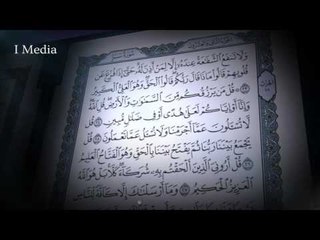 I Media
وَلَا تَنفَعُ ٱلشَّفَٰعَةُ عِندَهُۥٓ إِلَّا لِمَنْ أَذِنَ لَهُۥ حَتَّىٰٓ إِذَا فُزِّعَ عَن
قُلُوبِهِمْ قَالُوا۟ مَاذَا قَالَ رَبُّكُمْ قَالُوا۟ ٱلْحَقَّ وَهُوَ ٱلْعَلِىُّ ٱلْكَبِيرُ
قُلْ مَن يَرْزُقُكُم مِّنَ ٱلسَّمَٰوَٰتِ وَٱلْأَرْضِ قُلِ ٱللَّهُ
وَإِنَّآ أَوْ إِيَّاكُمْ لَعَلَىٰ هُدًى أَوْ فِى ضَلَٰلٍ مُّبِينٍ قُل
لَّا تُسْـَٔلُونَ عَمَّآ أَجْرَمْنَا وَلَا نُسْـَٔلُ عَمَّا تَعْمَلُونَ قُلْ
يَجْمَعُ بَيْنَنَا رَبُّنَا ثُمَّ يَفْتَحُ بَيْنَنَا بِٱلْحَقِّ وَهُوَ ٱلْفَتَّاحُ ٱلْعَلِيمُ
قُلْ أَرُونِىَ ٱلَّذِينَ أَلْحَقْتُم بِهِۦ شُرَكَآءَ كَلَّا بَلْ هُوَ ٱللَّهُ
ٱلْعَزِيزُ ٱلْحَكِيمُ وَمَآ أَرْسَلْنَٰكَ إِلَّا كَآفَّةً لِّلنَّاسِ